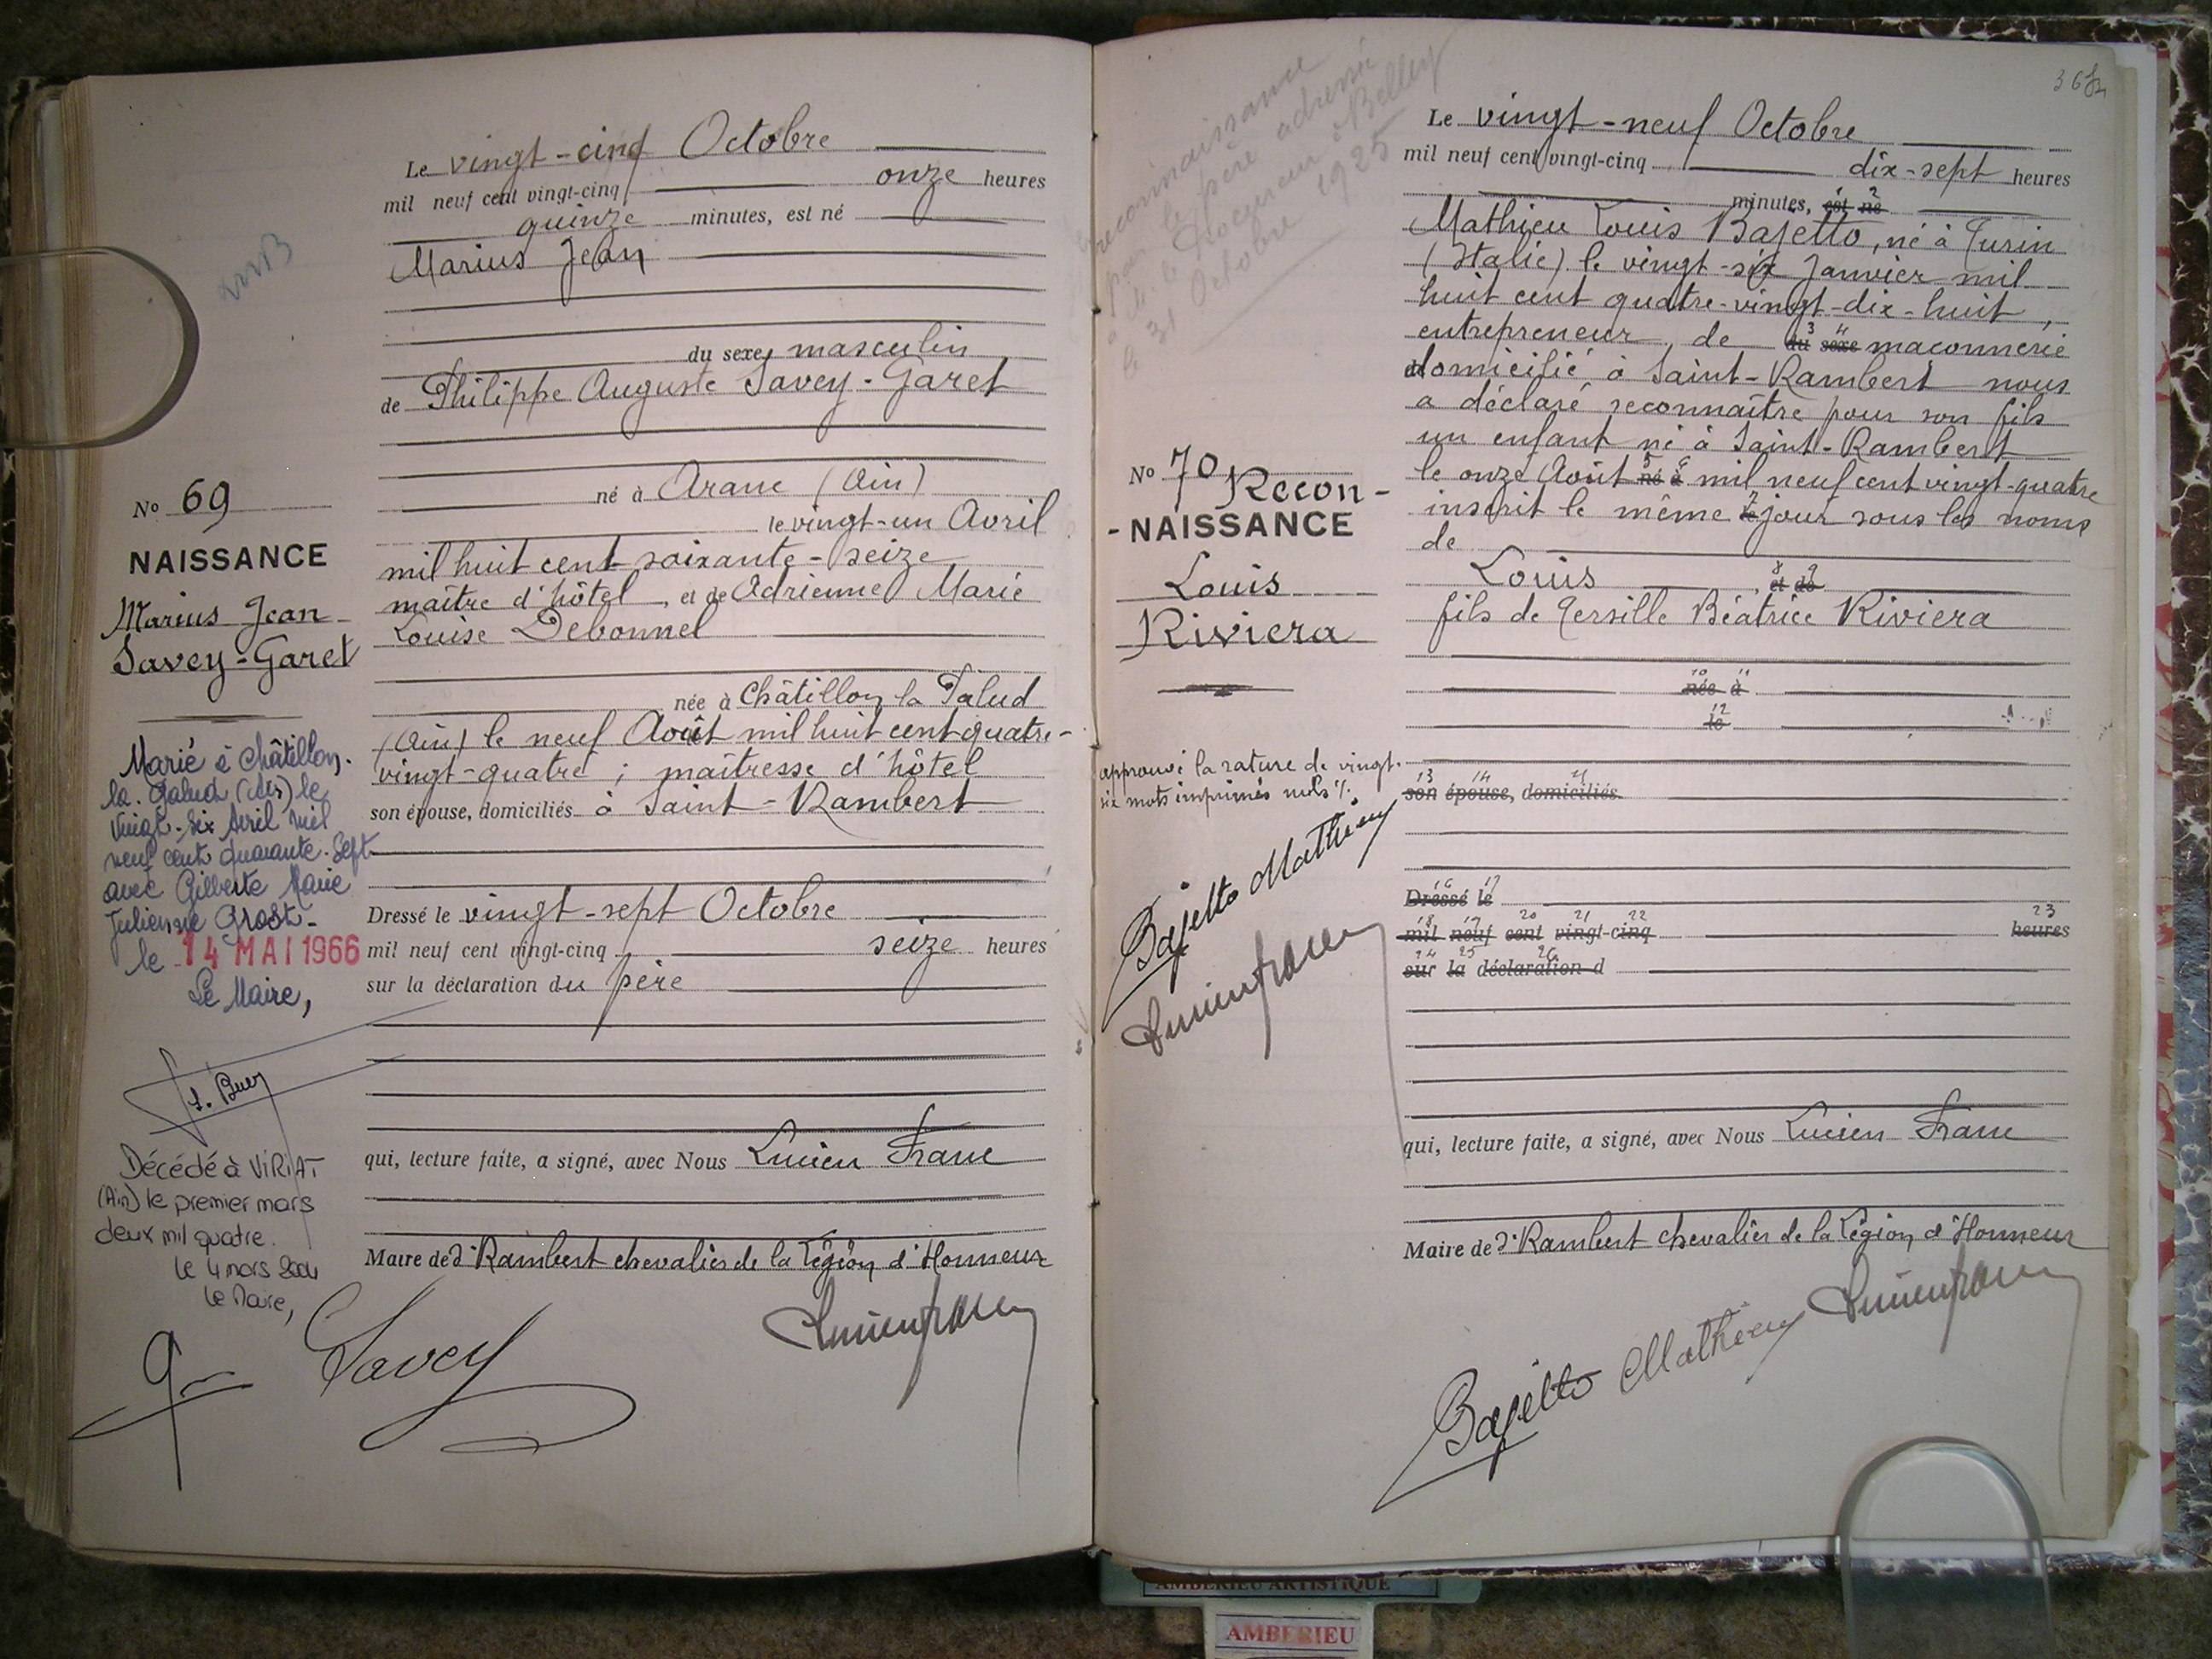 Le vingt-cinq Octobre
mil neuf cent vingt-cinq onze heures
quinze minutes, est né
Marius Jean
du sexe masculin
de Philippe Auguste Savey-Garet
né à Aranc (Ain)
le vingt-un Avril
mil huit cent soixante-seize
maître d'hôtel, et de Adrienne Marie
Louise Debonnel
née à Châtillon la Palud
(Ain) le neuf Août mil huit cent quatre-
vingt-quatre ; maîtresse d'hôtel
son épouse, domiciliés à Saint-Rambert
Dressé le vingt-sept Octobre
mil neuf cent vingt-cinq seize heures
sur la déclaration du père
qui, lecture faite, a signé, avec Nous Lucien Franc
Maire de St Rambert chevalier de la Légion d'Honneur
Savey
No 69
NAISSANCE
Marius Jean
Savey-Garet
Marié à Châtillon-
la-Palud (Ain) le
vingt-six Avril mil
neuf cent quarante-sept
avec Gilberte Marie
Julienne
le 14 MAI 1966
Le Maire,
Décédé à VIRIAT
(Ain) le premier mars
deux mil quatre.
Le 4 mars 2004
Le Maire,
reconnaissance
par le père adressée
à M. le Procureur à Belley
le 31 Octobre 1925
No 70 Recon-
-NAISSANCE
Louis
Riviera
approuvé la rature de vingt-
six mots imprimés nuls
Bajetto Mathieu
Le vingt-neuf Octobre
mil neuf cent vingt-cinq dix-sept heures
minutes, est né
Mathieu Louis Bajetto, né à Turin
(Italie) le vingt-six Janvier mil
huit cent quatre-vingt-dix-huit,
entrepreneur de du sexe maçonnerie
domicilié à Saint-Rambert nous
a déclaré reconnaître pour son fils
un enfant né à Saint-Rambert
le onze Août né à mil neuf cent vingt-quatre
inscrit le même le jour sous les noms
de
Louis et de
fils de Tersille Béatrice Riviera
née à
le
son épouse, domiciliés
Dressé le
mil neuf cent vingt-cinq heures
sur la déclaration d
qui, lecture faite, a signé, avec Nous Lucien Franc
Maire de St Rambert chevalier de la Légion d'Honneur
Bajetto Mathieu
AMBERIEU ARTISTIQUE
AMBERIEU